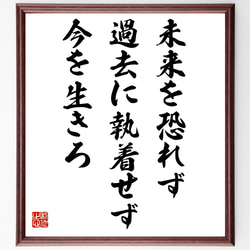 未来を恐れず
過去に執着せず
今を生きろ